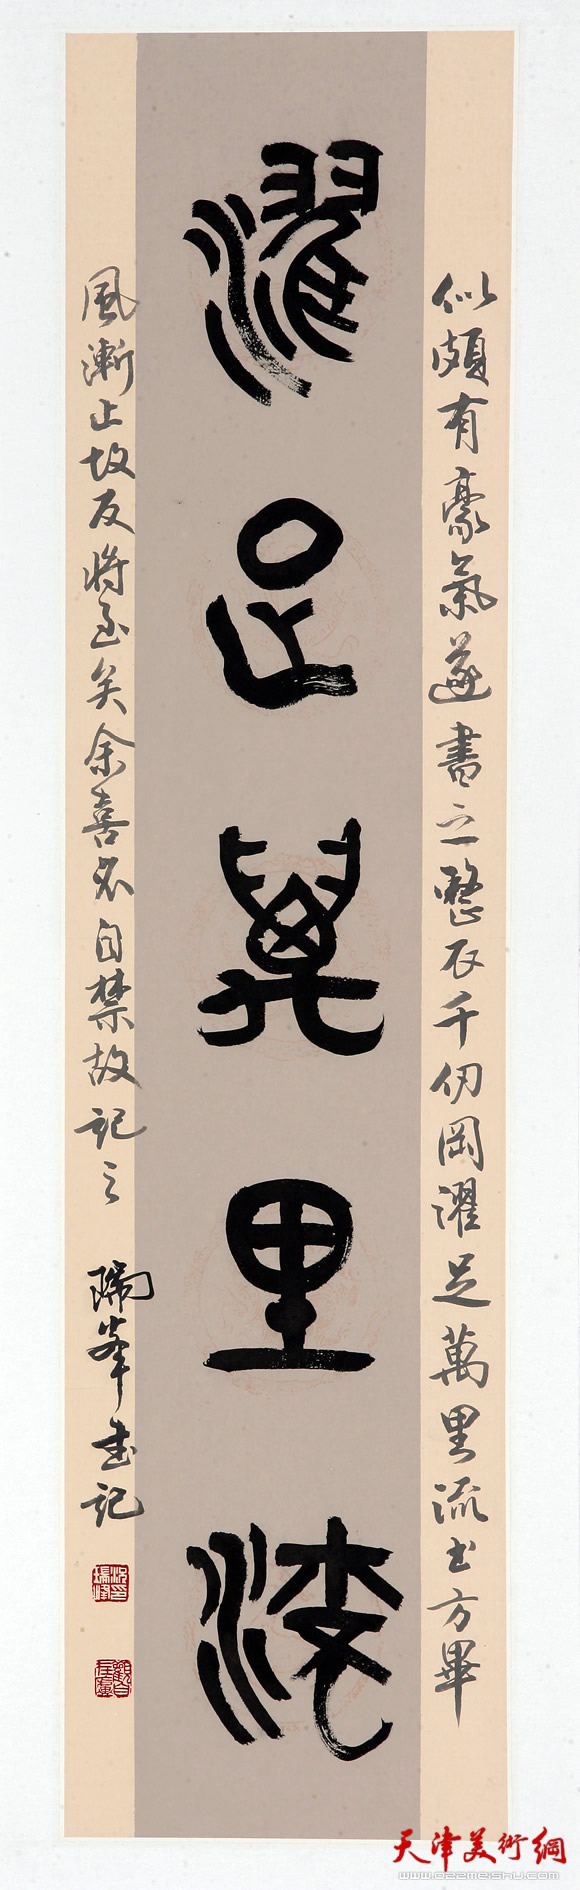 濯足萬里流
似頗有豪氣遂書之整衣千仞岡濯足萬里流書方畢
風漸止故友將至矣余喜不自禁故記之 瑞峯書記
天津美術網
www.022meishu.com